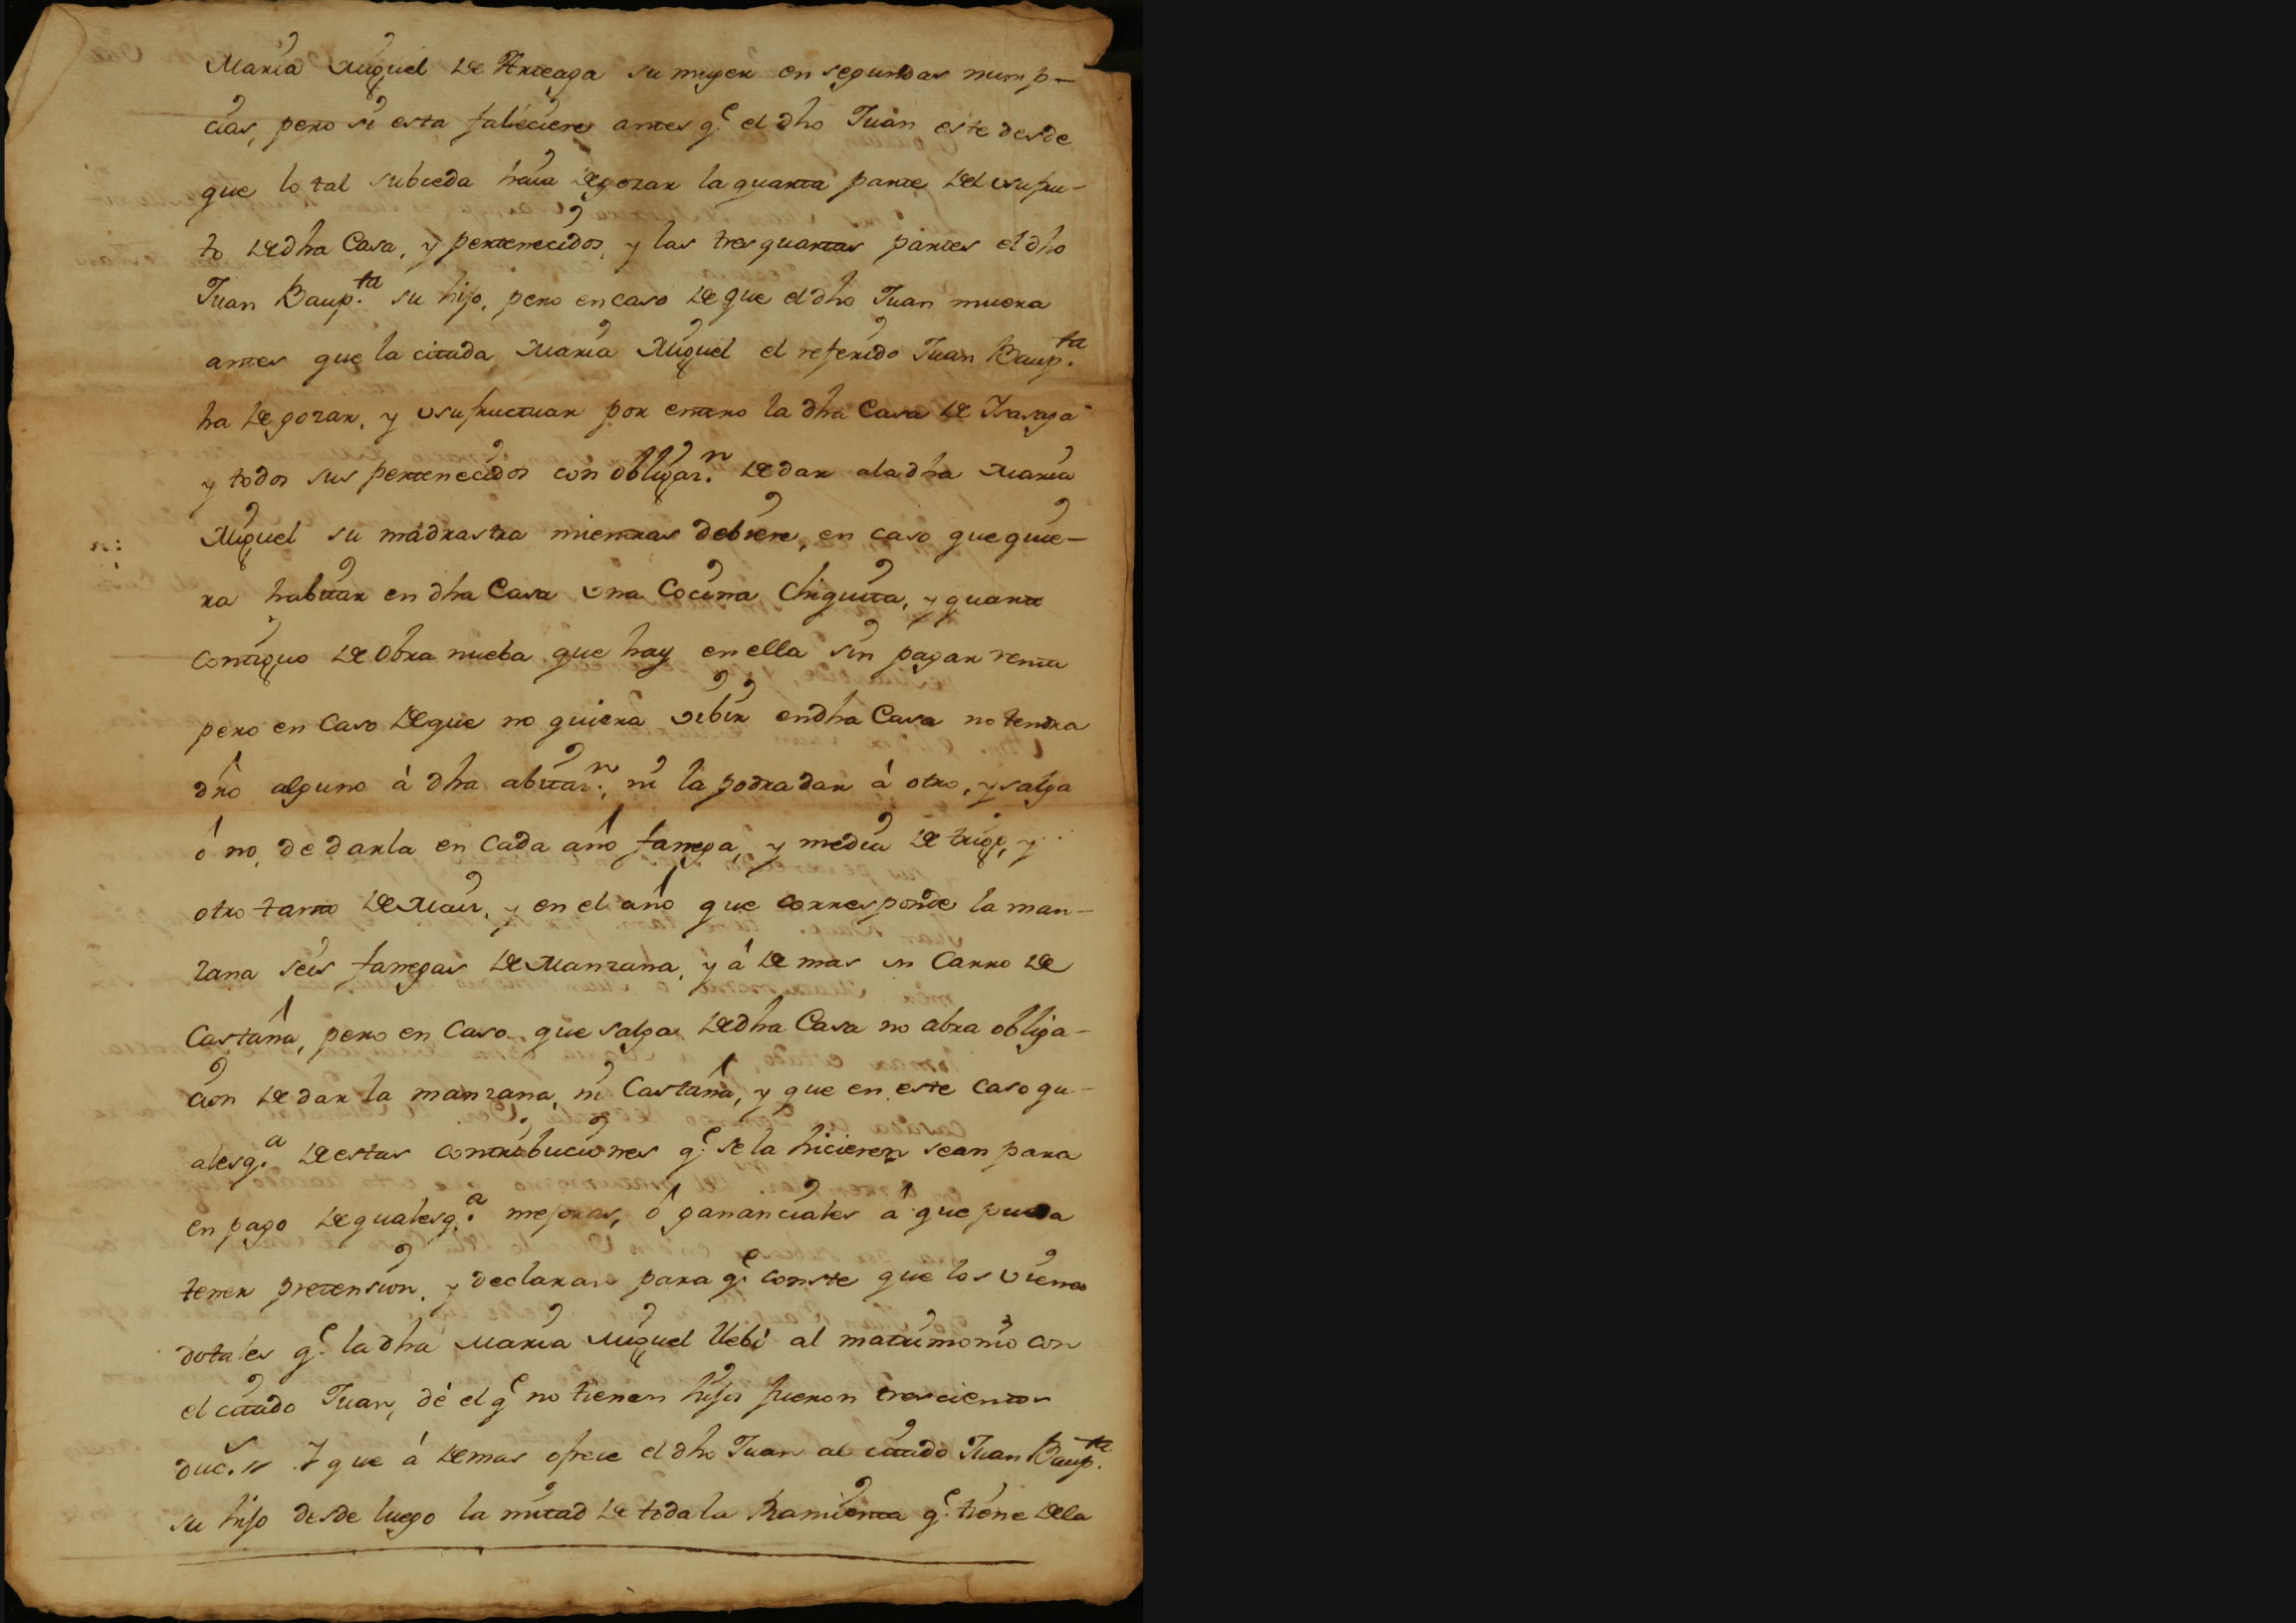 Maria Miguel de Arteaga su muger en segundas nump-
cias, pero si esta falleciere antes q.e el dho Juan este desde
que lo tal subceda haia de gozar la quarta parte del usufru-
to de dha Casa, y pertenecidos, y las tres quartas partes el dho
Juan Baup.ta su hijo, pero en caso de que el dho Juan muera
antes que la citada Maria Miguel el referido Juan Baup.ta
ha de gozar, y usufructuar por entero la dha Casa de
y todos sus pertenecidos con obligaz.n de dar a la dha Maria
Miguel su madrastra mientras vibiere, en caso que quie-
ra habitar en dha Casa una Cocina Chiquita, y quarto
contiguo de Obra nueba que hay en ella sin pagar renta
pero en Caso de que no quiera vibir en dha Casa no tendra
dro alguno á dha abitaz.n, ni la podra dar á otro, y salga
ó no, de darla en Cada año fanega, y media de trigo, y
otro tanto de Maiz, y en el año que corresponde la man-
zana seis fanegas de Manzana, y á de mas un Carro de
Castaña, pero en Caso que salga de dha Casa no abra obliga-
cion de dar la manzana, ni Castaña, y que en este caso qu-
alesq.a de estas contribuciones q.e se la hicieren sean para
en pago de qualesq.a mejoras, ó gananciales á que pueda
tener pretension, y declaran para q.e conste que los vienes
dotales q.e la dha Maria Miguel llebó al matrimonio con
el citado Juan, de el q.e no tienen hijos fueron trescientos
duc.s Y que á de mas ofrece el dho Juan al citado Juan Baup.ta
su hijo desde luego la mitad de toda la Ramienta q.e tiene de la